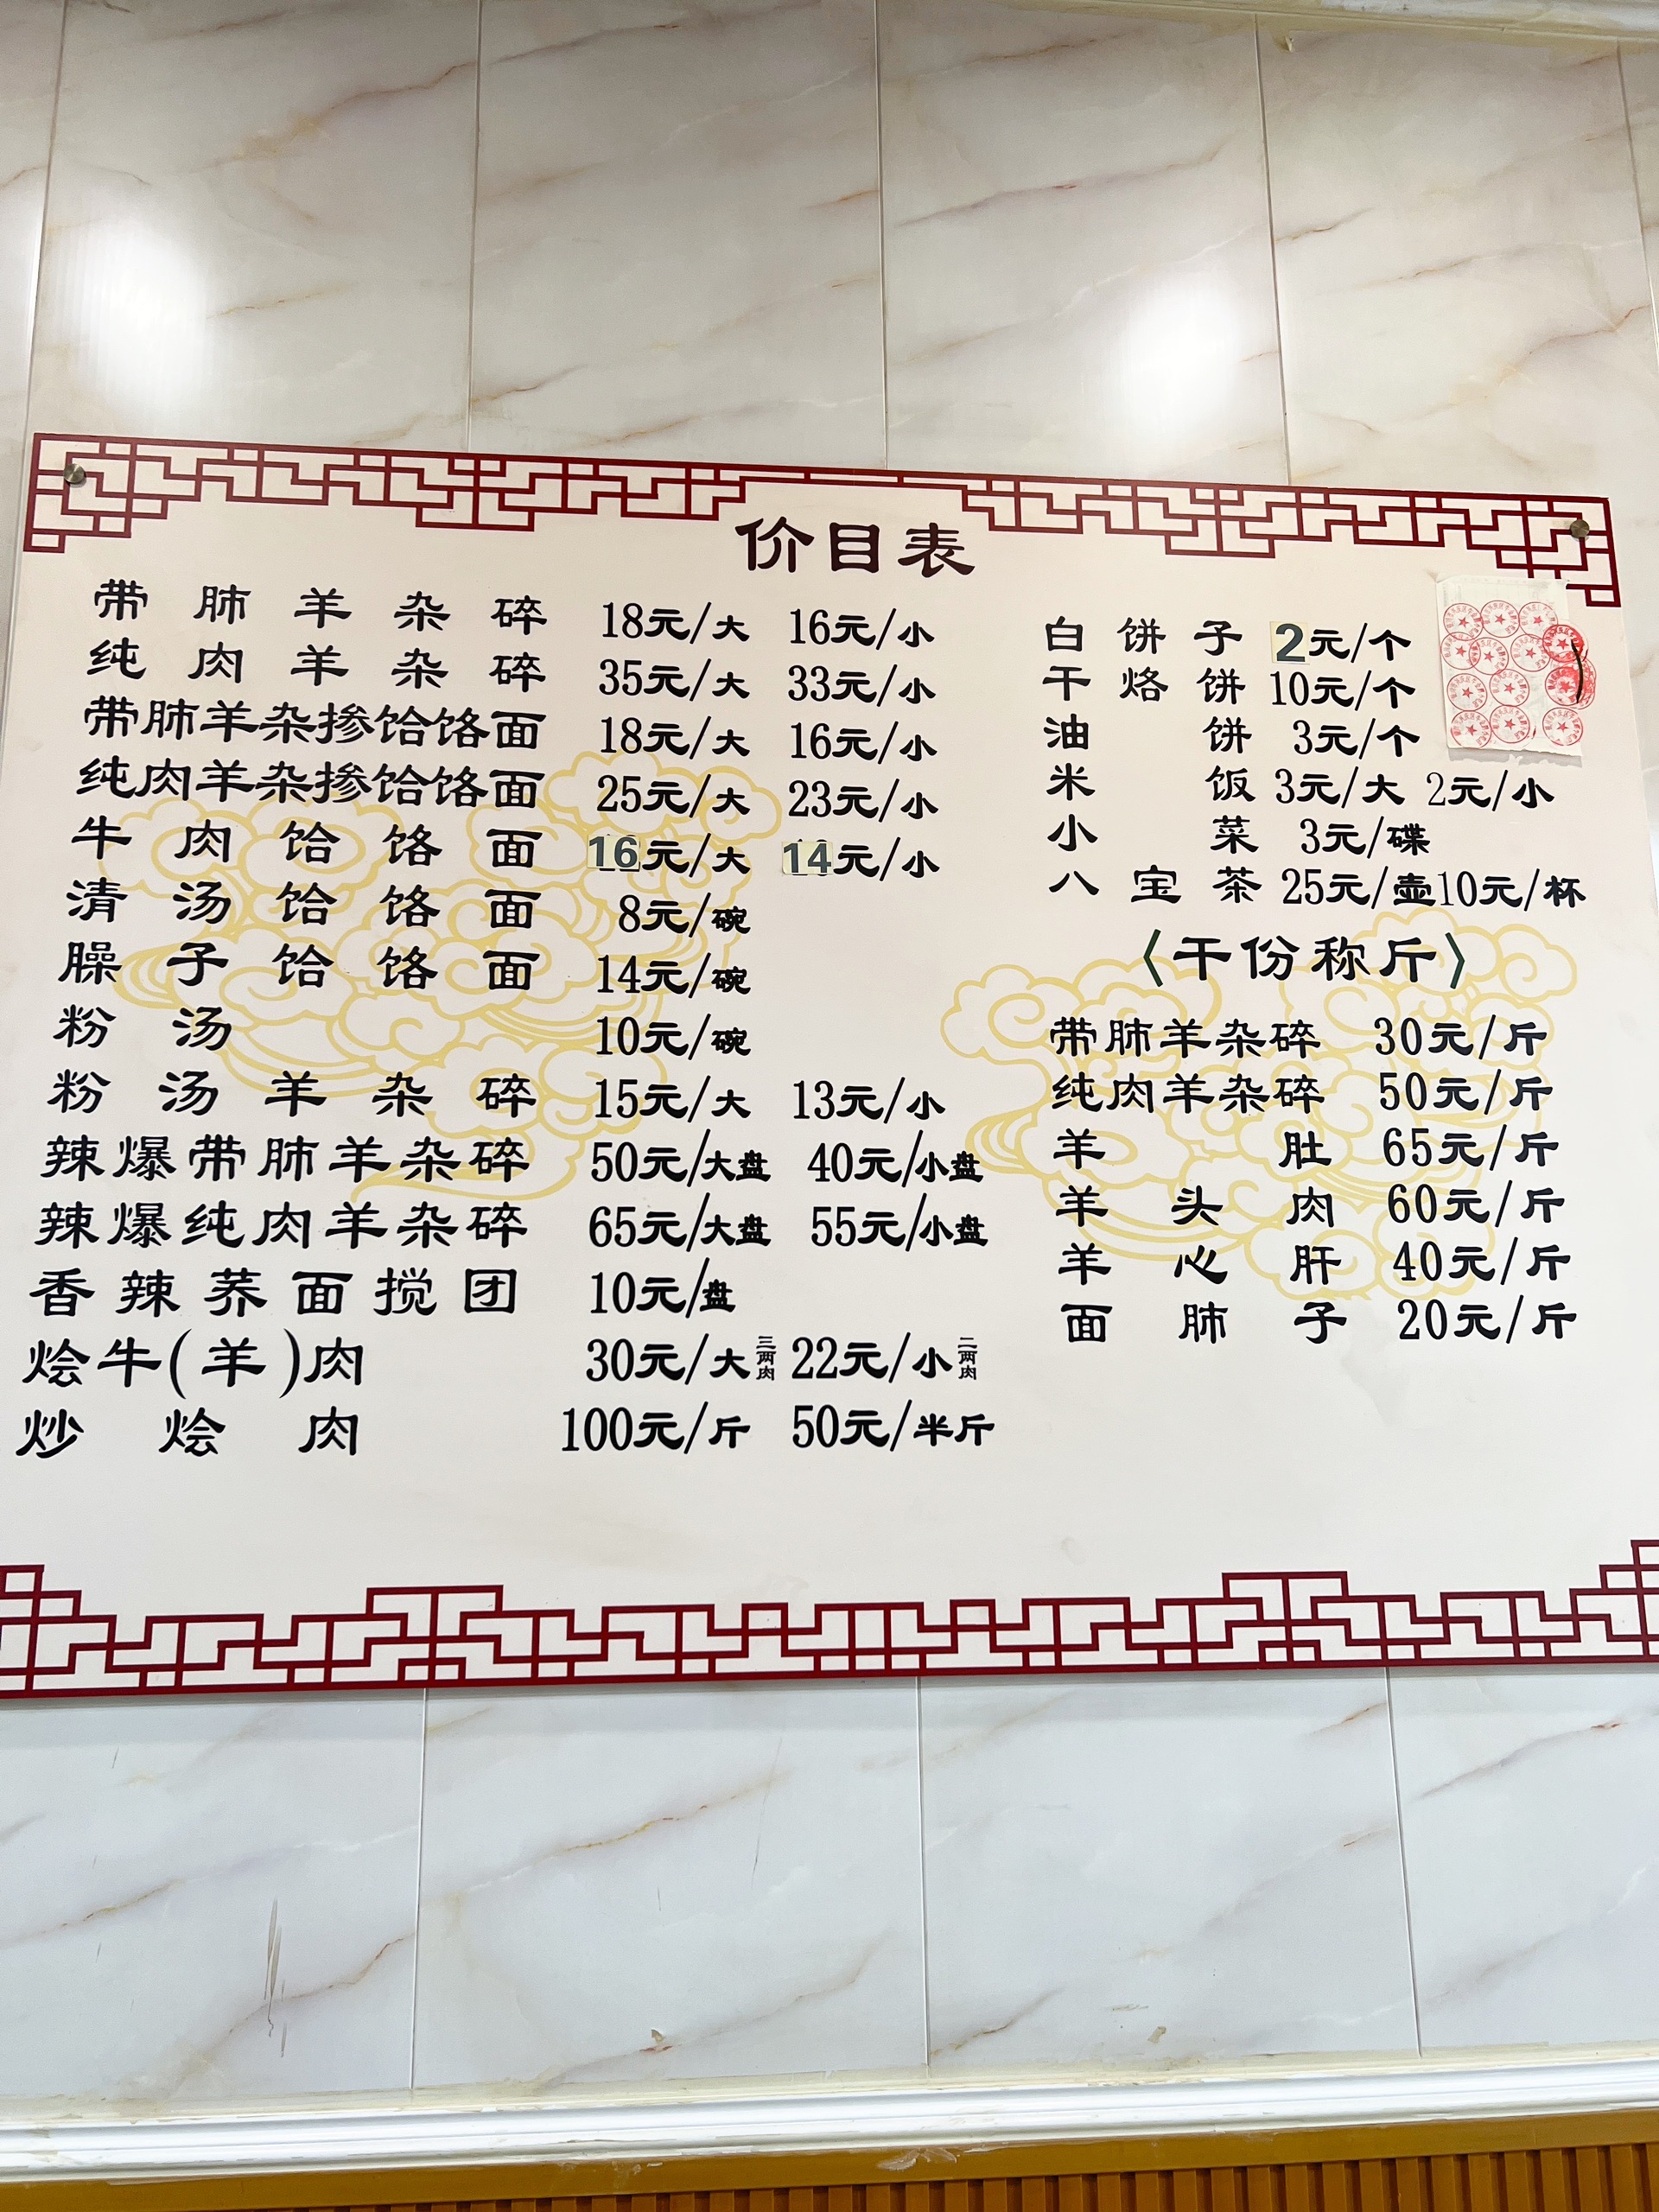 价目表
带肺羊杂碎 18元/大 16元/小
纯肉羊杂碎 35元/大 33元/小
带肺羊杂掺饸饹面 18元/大 16元/小
纯肉羊杂掺饸饹面 25元/大 23元/小
牛肉饸饹面 16元/大 14元/小
清汤饸饹面 8元/碗
臊子饸饹面 14元/碗
粉汤 10元/碗
粉汤羊杂碎 15元/大 13元/小
辣爆带肺羊杂碎 50元/大盘 40元/小盘
辣爆纯肉羊杂碎 65元/大盘 55元/小盘
香辣荞面搅团 10元/盘
烩牛(羊)肉 30元/大三两肉 22元/小二两肉
炒烩肉 100元/斤 50元/半斤
白饼子 2元/个
干烙饼 10元/个
油饼 3元/个
米饭 3元/大 2元/小
小菜 3元/碟
八宝茶 25元/壶10元/杯
〈干份称斤〉
带肺羊杂碎 30元/斤
纯肉羊杂碎 50元/斤
羊肚 65元/斤
羊头肉 60元/斤
羊心肝 40元/斤
面肺子 20元/斤